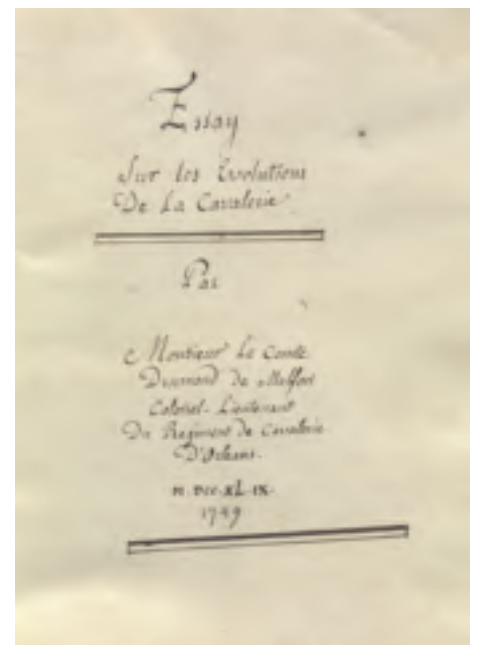 Essay
Sur les Evolutions
De La Cavalerie
Par
Monsieur Le Comte
Drumond de Melfort
Colonel-Lieutenant
Du Regiment de Cavalerie
D'Orleans.
M.DCC.XL.IX.
1749